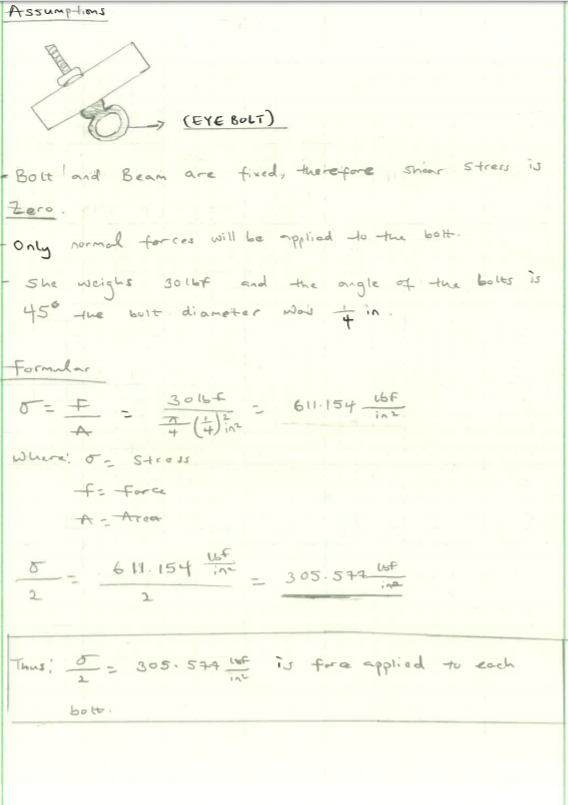 Assumptions
(EYE BOLT)
- Bolt and Beam are fixed, therefore shear stress is
Zero.
- Only normal forces will be applied to the bolt.
- She weighs 30lbf and the angle of the bolts is
45° the bolt diameter was 1/4 in.
Formular
σ = F/A = 30lbf / (π/4 (1/4)² in²) = 611.154 lbf/in²
Where: σ = Stress
f = Force
A = Area
σ/2 = 611.154 lbf/in² / 2 = 305.577 lbf/in²
Thus: σ/2 = 305.577 lbf/in² is force applied to each
bolt.